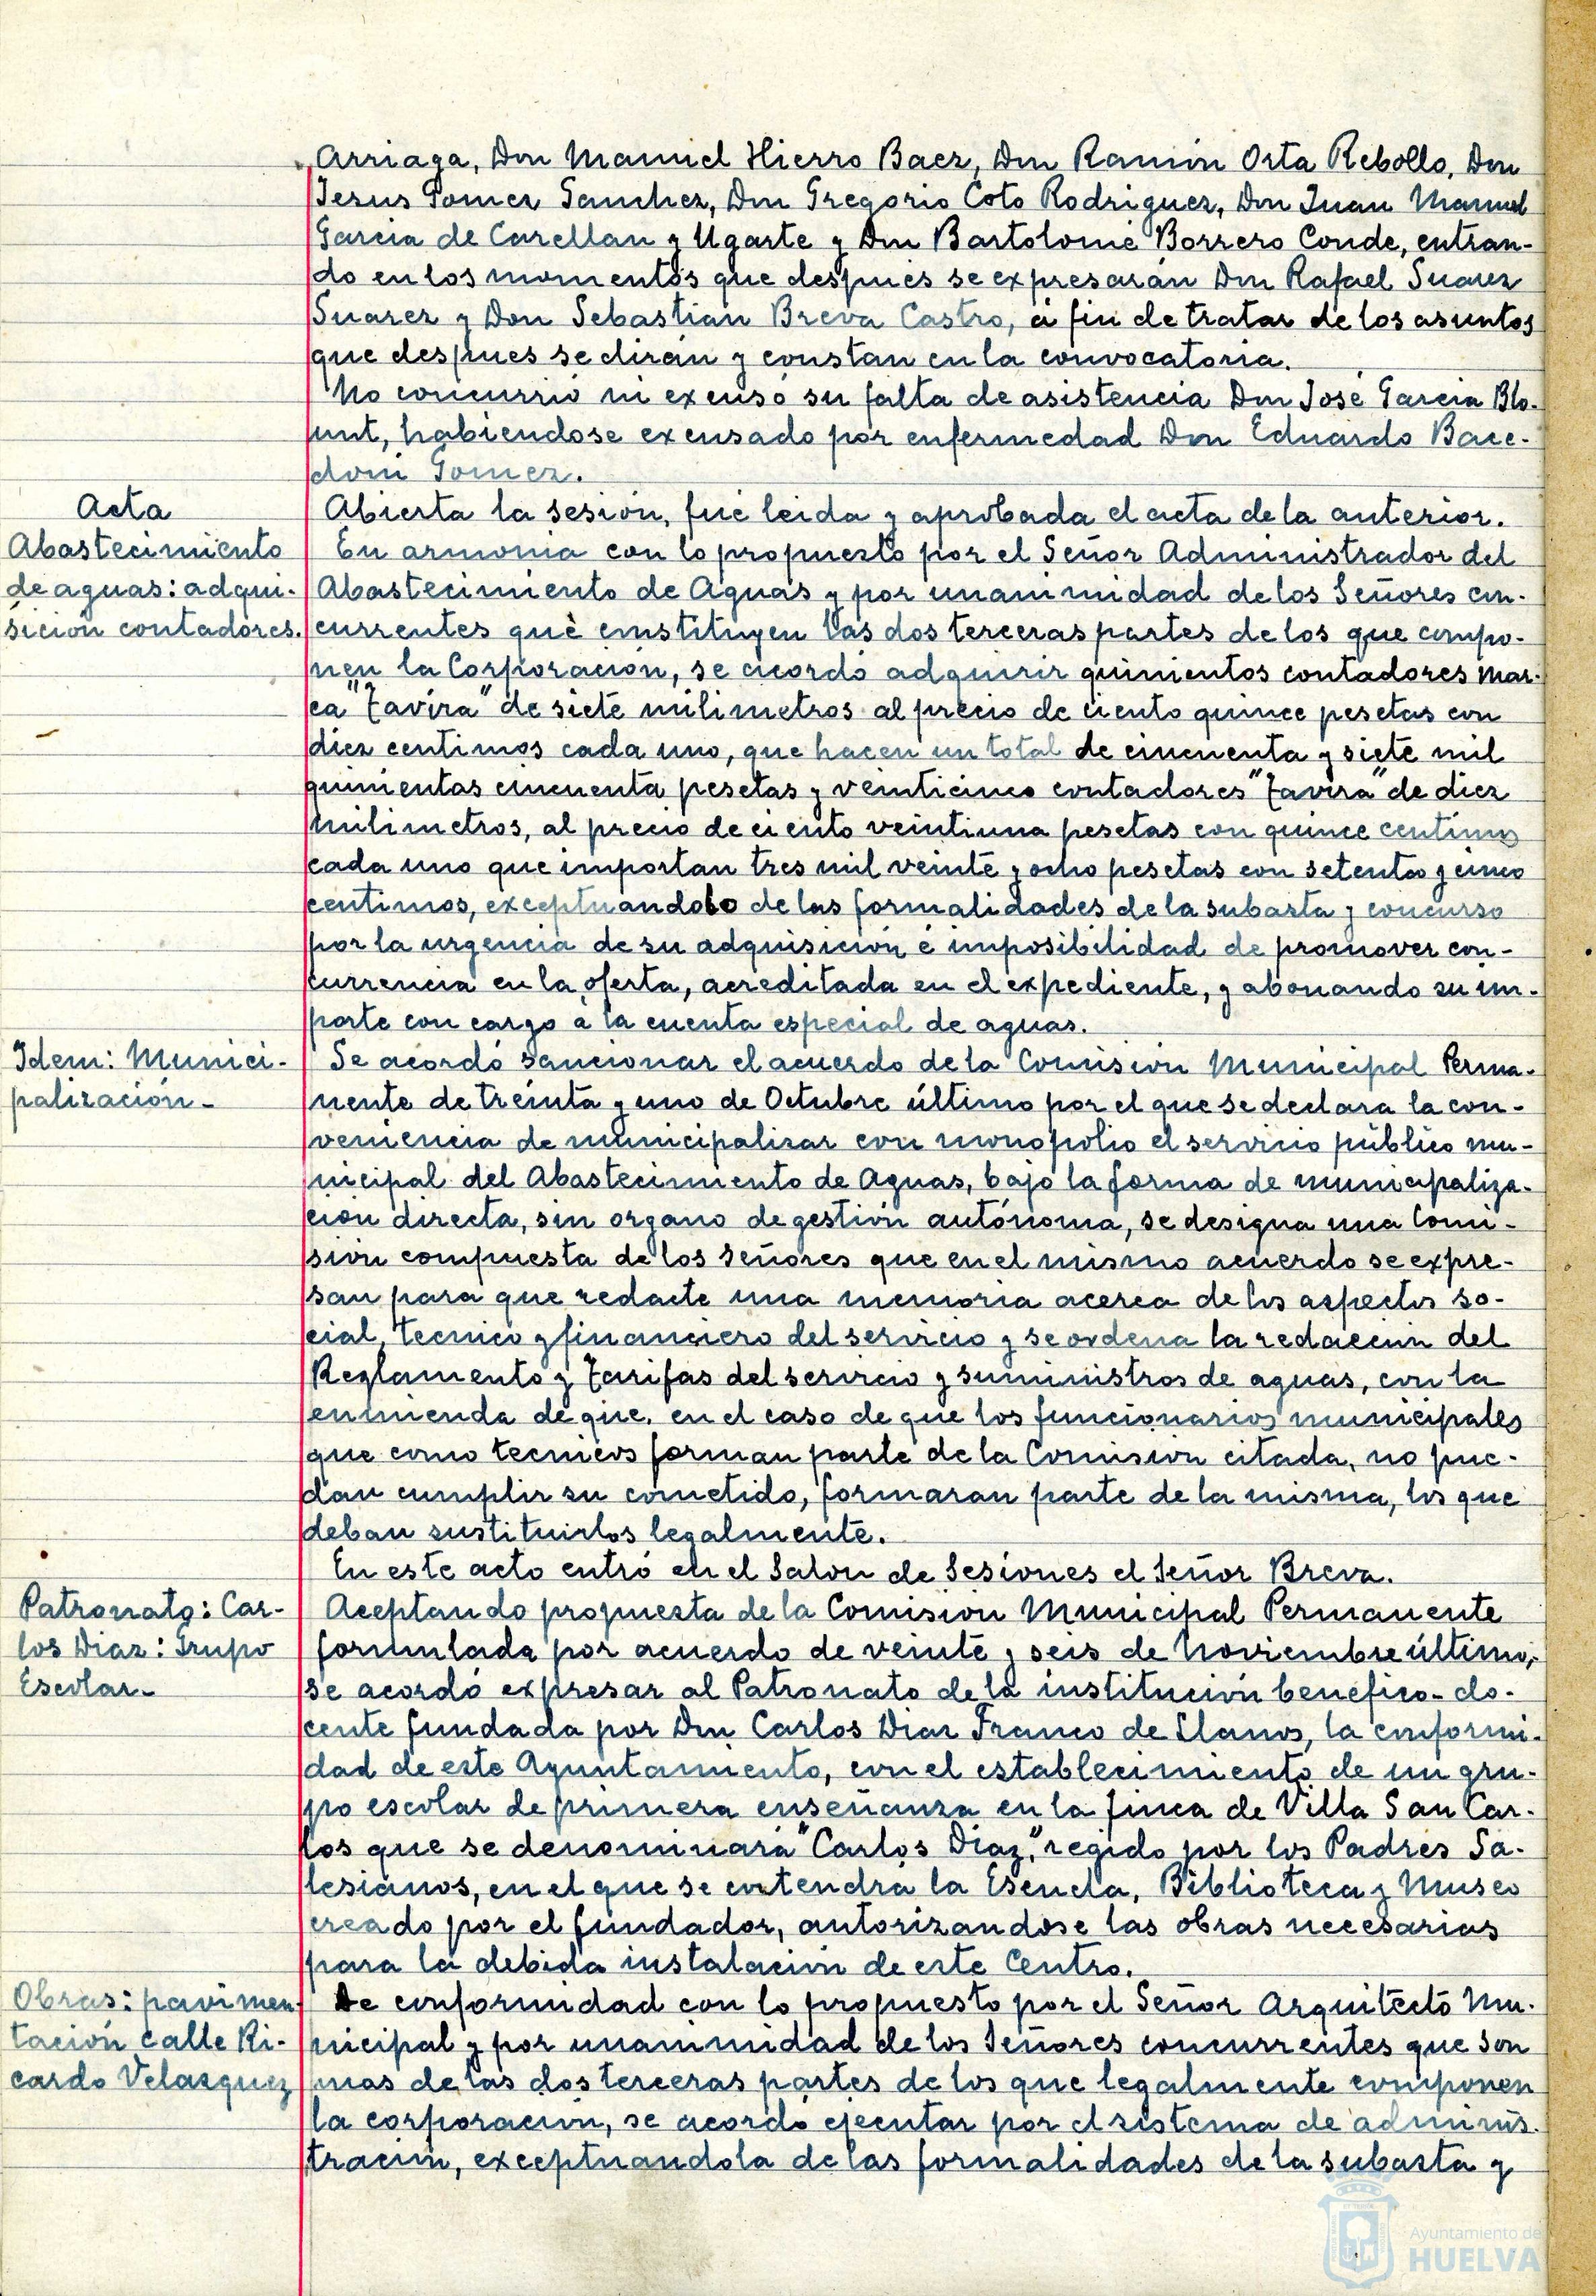 Arriaga, Don Manuel Hierro Baez, Don Ramón Orta Rebollo, Don
Jesus Gomez Sanchez, Don Gregorio Coto Rodriguez, Don Juan Manuel
Garcia de Carellan y Ugarte y Don Bartolomé Borrero Conde, entran-
do en los momentos que después se expresarán Don Rafael Suarez
Suarez y Don Sebastián Breva Castro, á fin de tratar de los asuntos
que despues se dirán y constan en la convocatoria.
No concurrió ni excusó su falta de asistencia Don José Garcia Blo-
unt, habiendose excusado por enfermedad Don Eduardo Bace-
doni Gomez.
Acta
Abierta la sesión, fué leida y aprobada el acta de la anterior.
Abastecimiento
de aguas: adqui-
sición contadores.
En armonia con lo propuesto por el Señor Administrador del
Abastecimiento de Aguas y por unanimidad de los Señores con-
currentes que constituyen las dos terceras partes de los que compo-
nen la Corporación, se acordó adquirir quinientos contadores mar-
ca "Tavira" de siete milimetros al precio de ciento quince pesetas con
diez centimos cada uno, que hacen un total de cincuenta y siete mil
quinientas cincuenta pesetas y veinticinco contadores "Tavira" de diez
milimetros, al precio de ciento veintiuna pesetas con quince centimos
cada uno que importan tres mil veinte y ocho pesetas con setenta y cinco
centimos, exceptuandolo de las formalidades de la subasta y concurso
por la urgencia de su adquisición é imposibilidad de promover con-
currencia en la oferta, acreditada en el expediente, y abonando su im-
porte con cargo a la cuenta especial de aguas.
Idem: Munici-
palización-
Se acordó sancionar el acuerdo de la Comisión Municipal Perma-
nente de treinta y uno de Octubre último por el que se declara la con-
veniencia de municipalizar con monopolio el servicio público mu-
nicipal del Abastecimiento de Aguas, bajo la forma de municipaliza-
ción directa, sin organo de gestión autónoma, se designa una Comi-
sión compuesta de los Señores que en el mismo acuerdo se expre-
san para que redacte una memoria acerca de los aspectos so-
cial, tecnico y financiero del servicio y se ordena la redacción del
Reglamento y Tarifas del servicio y suministros de aguas, con la
enmienda de que, en el caso de que los funcionarios municipales
que como tecnicos forman parte de la Comisión citada, no pue-
dan cumplir su cometido, formaran parte de la misma, los que
deban sustituirlos legalmente.
En este acto entró en el Salon de Sesiones el Señor Breva.
Patronato: Car-
los Diaz: Grupo
Escolar-
Aceptando propuesta de la Comisión Municipal Permanente
formulada por acuerdo de veinte y seis de Noviembre último,
se acordó expresar al Patronato de la institución benefico-do-
cente fundada por Don Carlos Diaz Franco de Llanos, la conformi-
dad de este Ayuntamiento, con el establecimiento de un gru-
po escolar de primera enseñanza en la finca de Villa San Car-
los que se denominará "Carlos Diaz," regido por los Padres Sa-
lesianos, en el que se entendrá la Escuela, Biblioteca y Museo
creado por el fundador, autorizandose las obras necesarias
para la debida instalación de este Centro.
Obras: pavimen-
tación calle Ri-
cardo Velazquez
De conformidad con lo propuesto por el Señor Arquitecto Mu-
nicipal y por unanimidad de los Señores concurrentes que son
mas de las dos terceras partes de los que legalmente componen
la corporación, se acordó ejecutar por el sistema de adminis-
tración, exceptuandola de las formalidades de la subasta y
Ayuntamiento de
HUELVA